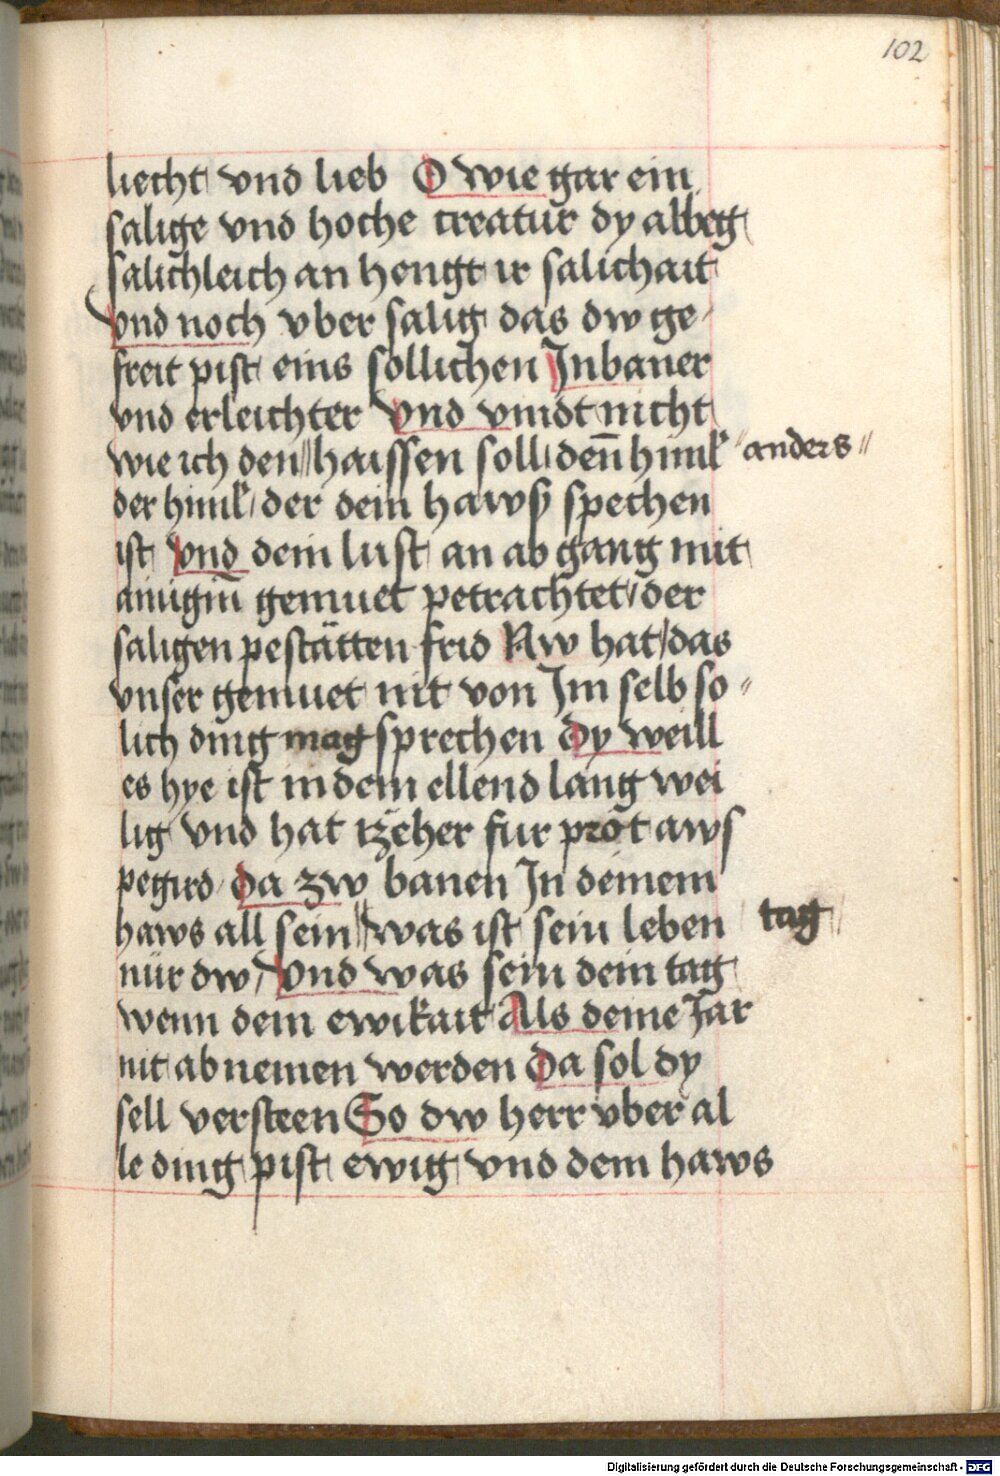 102
liecht vnd lieb O wie gar ein
salige vnd hoche creatur dy albeg
salichleich an hengt ir salichait
vnd noch vber salig das dw ge-
freit pist eins sollichen Inbaner
vnd erleichter vnd vindt nicht
wie ich den haissen soll denn himl anders
der himl der dein haws spechen
ist vnd dein lust an ab gang mit
gemuet petrachtet der
saligen pestätten frid Rw hat das
vnser gemuet nit von Im selb so-
lich ding mag sprechen dy weill
es hye ist in dem ellend lang wei
lig vnd hat zeher fur prot aws
pegird da zw banen In deinem
haws all sein was ist sein leben tag
nür dw vnd was sein dein tag
wenn dein ewikait Als deine Jar
nit ab nemen werden da sol dy
sell versteen So dw herr vber al
le ding pist ewig vnd dem haws
Digitalisierung gefördert durch die Deutsche Forschungsgemeinschaft - DFG